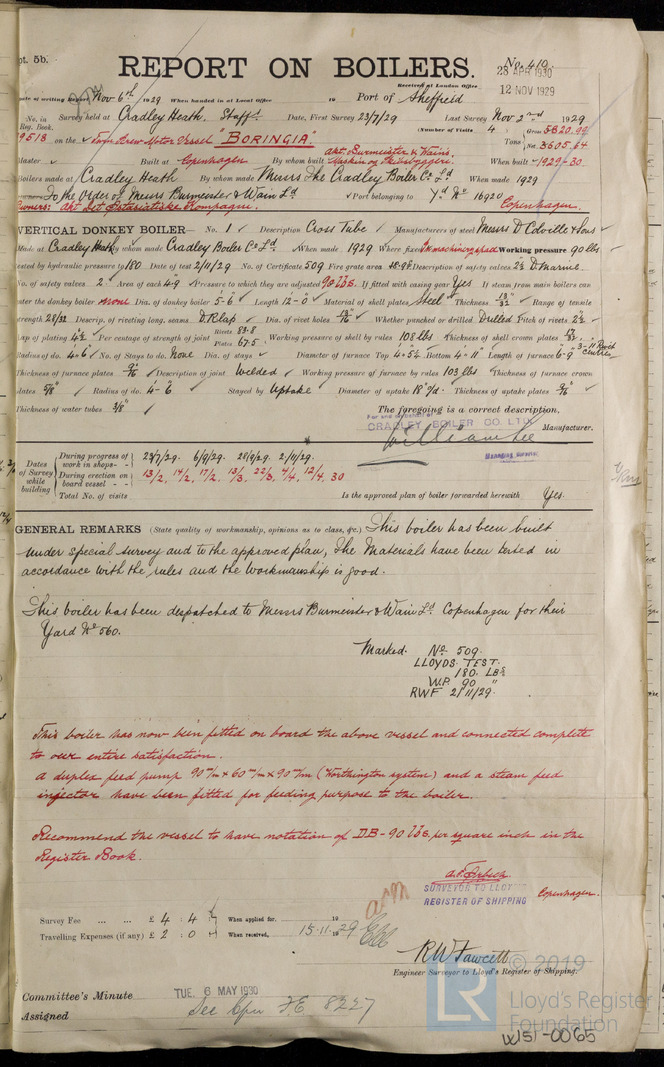 pt. 5b.
REPORT ON BOILERS.
No. 419.
28 APR 1930
Received at London Office
12 NOV 1929
Date of writing Report Nov 6th 1929 When handed in at Local Office 19 Port of Sheffield
No. in Reg. Book. Survey held at Cradley Heath. Staffs. Date, First Survey 23/7/29 Last Survey Nov 2nd 1929
(Number of Visits 4)
9518 on the Twin Screw Motor Vessel "BORINGIA" Tons Gross 5820.99 Net 3605.64
Master Built at Copenhagen By whom built Akt. Burmeister & Wain's Maskin og Skibsbyggeri. When built 1929-30.
Boilers made at Cradley Heath By whom made Messrs The Cradley Boiler Co. Ld When made 1929
To the order of Messrs Burmeister & Wain Ld Port belonging to Yd No 16920
Owners: Akt. Det Østasiatiske Kompagni. Copenhagen.
VERTICAL DONKEY BOILER No. 1 Description Cross Tube Manufacturers of steel Messrs D Colville & Sons
Made at Cradley Heath by whom made Cradley Boiler Co. Ld When made 1929 Where fixed In machinery space Working pressure 90 lbs
tested by hydraulic pressure to 180 Date of test 2/11/29 No. of Certificate 509 Fire grate area Description of safety valves 2½ D. Marine.
No. of safety valves 2 Area of each 4.9 Pressure to which they are adjusted 90 lbs. If fitted with easing gear Yes If steam from main boilers can
enter the donkey boiler none Dia. of donkey boiler 5'-6" Length 12'-0" Material of shell plates Steel Thickness 13/32 Range of tensile
strength 28/32 Descrip. of riveting long. seams D.R.lap Dia. of rivet holes 13/16 Whether punched or drilled Drilled Pitch of rivets 2½
Lap of plating 4½ Per centage of strength of joint Rivets 83.8 Plates 67.5 Working pressure of shell by rules 108 lbs Thickness of shell crown plates 17/32
Radius of do. 4'-6" No. of Stays to do. None Dia. of stays Diameter of furnace Top 4'-5½ Bottom 4'-11" Length of furnace 6'-9"
Thickness of furnace plates 9/16 Description of joint Welded Working pressure of furnace by rules 103 lbs Thickness of furnace crown
plates 5/8" Radius of do. 4'-6" Stayed by Uptake Diameter of uptake Thickness of uptake plates 9/16
Thickness of water tubes 3/8"
The foregoing is a correct description,
For and on behalf of
CRADLEY BOILER CO. LTD.
William Lee Manufacturer.
Managing Director
Dates of Survey while building
During progress of work in shops - - 23/7/29. 6/9/29. 28/9/29. 2/11/29.
During erection on board vessel - - 13/2, 14/2, 17/2, 13/3, 22/3, 4/4, 12/4, 30
Total No. of visits
Is the approved plan of boiler forwarded herewith Yes.
GENERAL REMARKS (State quality of workmanship, opinions as to class, &c.) This boiler has been built
under special survey and to the approved plan, The Materials have been tested in
accordance with the rules and the workmanship is good.
This boiler has been despatched to Messrs Burmeister & Wain Ld Copenhagen for their
Yard No 560.
Marked. No. 509.
LLOYDS. TEST.
180. LBS
W.P. 90 "
RWF 2/11/29.
This boiler has now been fitted on board the above vessel and connected complete
to our entire satisfaction.
A duplex feed pump 90 m/m x 60 m/m x 90 m/m (Worthington system) and a steam feed
injector have been fitted for feeding purpose to the boiler.
Recommend the vessel to have notation of DB-90 lbs, per square inch in the
Register Book.
SURVEYOR TO LLOYD'S
REGISTER OF SHIPPING
Copenhagen.
Survey Fee ... ... £ 4 : 4 : When applied for. 19
Travelling Expenses (if any) £ 2 : 0 : When received, 15.11.1929
RW Fawcett
Engineer Surveyor to Lloyd's Register of Shipping.
Committee's Minute TUE. 6 MAY 1930
Assigned See Cpn F.E. 8227
© 2019
LR
Lloyd's Register
Foundation
W151-0065